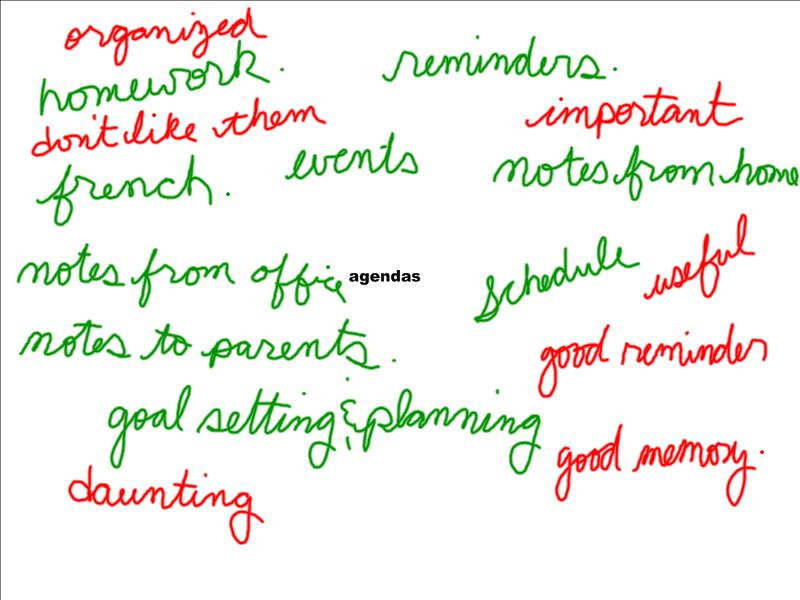 organized
homework.
reminders.
don't like them
important
french.
events
notes from home
notes from office
agendas
schedule
useful
notes to parents.
good reminder
goal setting & planning
good memory.
daunting